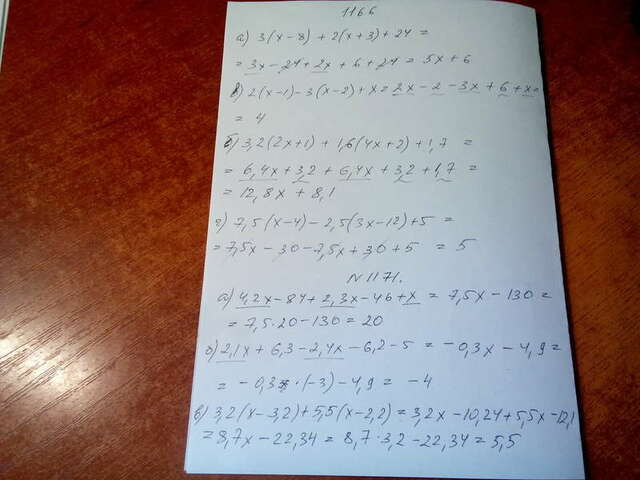 1166
а) 3(x-8) + 2(x+3) + 24 =
= 3x - 24 + 2x + 6 + 24 = 5x + 6
в) 2(x-1) - 3(x-2) + x = 2x - 2 - 3x + 6 + x =
= 4
б) 3,2(2x+1) + 1,6(4x+2) + 1,7 =
= 6,4x + 3,2 + 6,4x + 3,2 + 1,7 =
= 12,8x + 8,1
г) 7,5(x-4) - 2,5(3x-12) + 5 =
= 7,5x - 30 - 7,5x + 30 + 5 = 5
N 1171.
а) 4,2x - 84 + 2,3x - 46 + x = 7,5x - 130 =
= 7,5·20 - 130 = 20
б) 2,1x + 6,3 - 2,4x - 6,2 - 5 = -0,3x - 4,9 =
= -0,3·(-3) - 4,9 = -4
в) 3,2(x-3,2) + 5,5(x-2,2) = 3,2x - 10,24 + 5,5x - 12,1
= 8,7x - 22,34 = 8,7·3,2 - 22,34 = 5,5